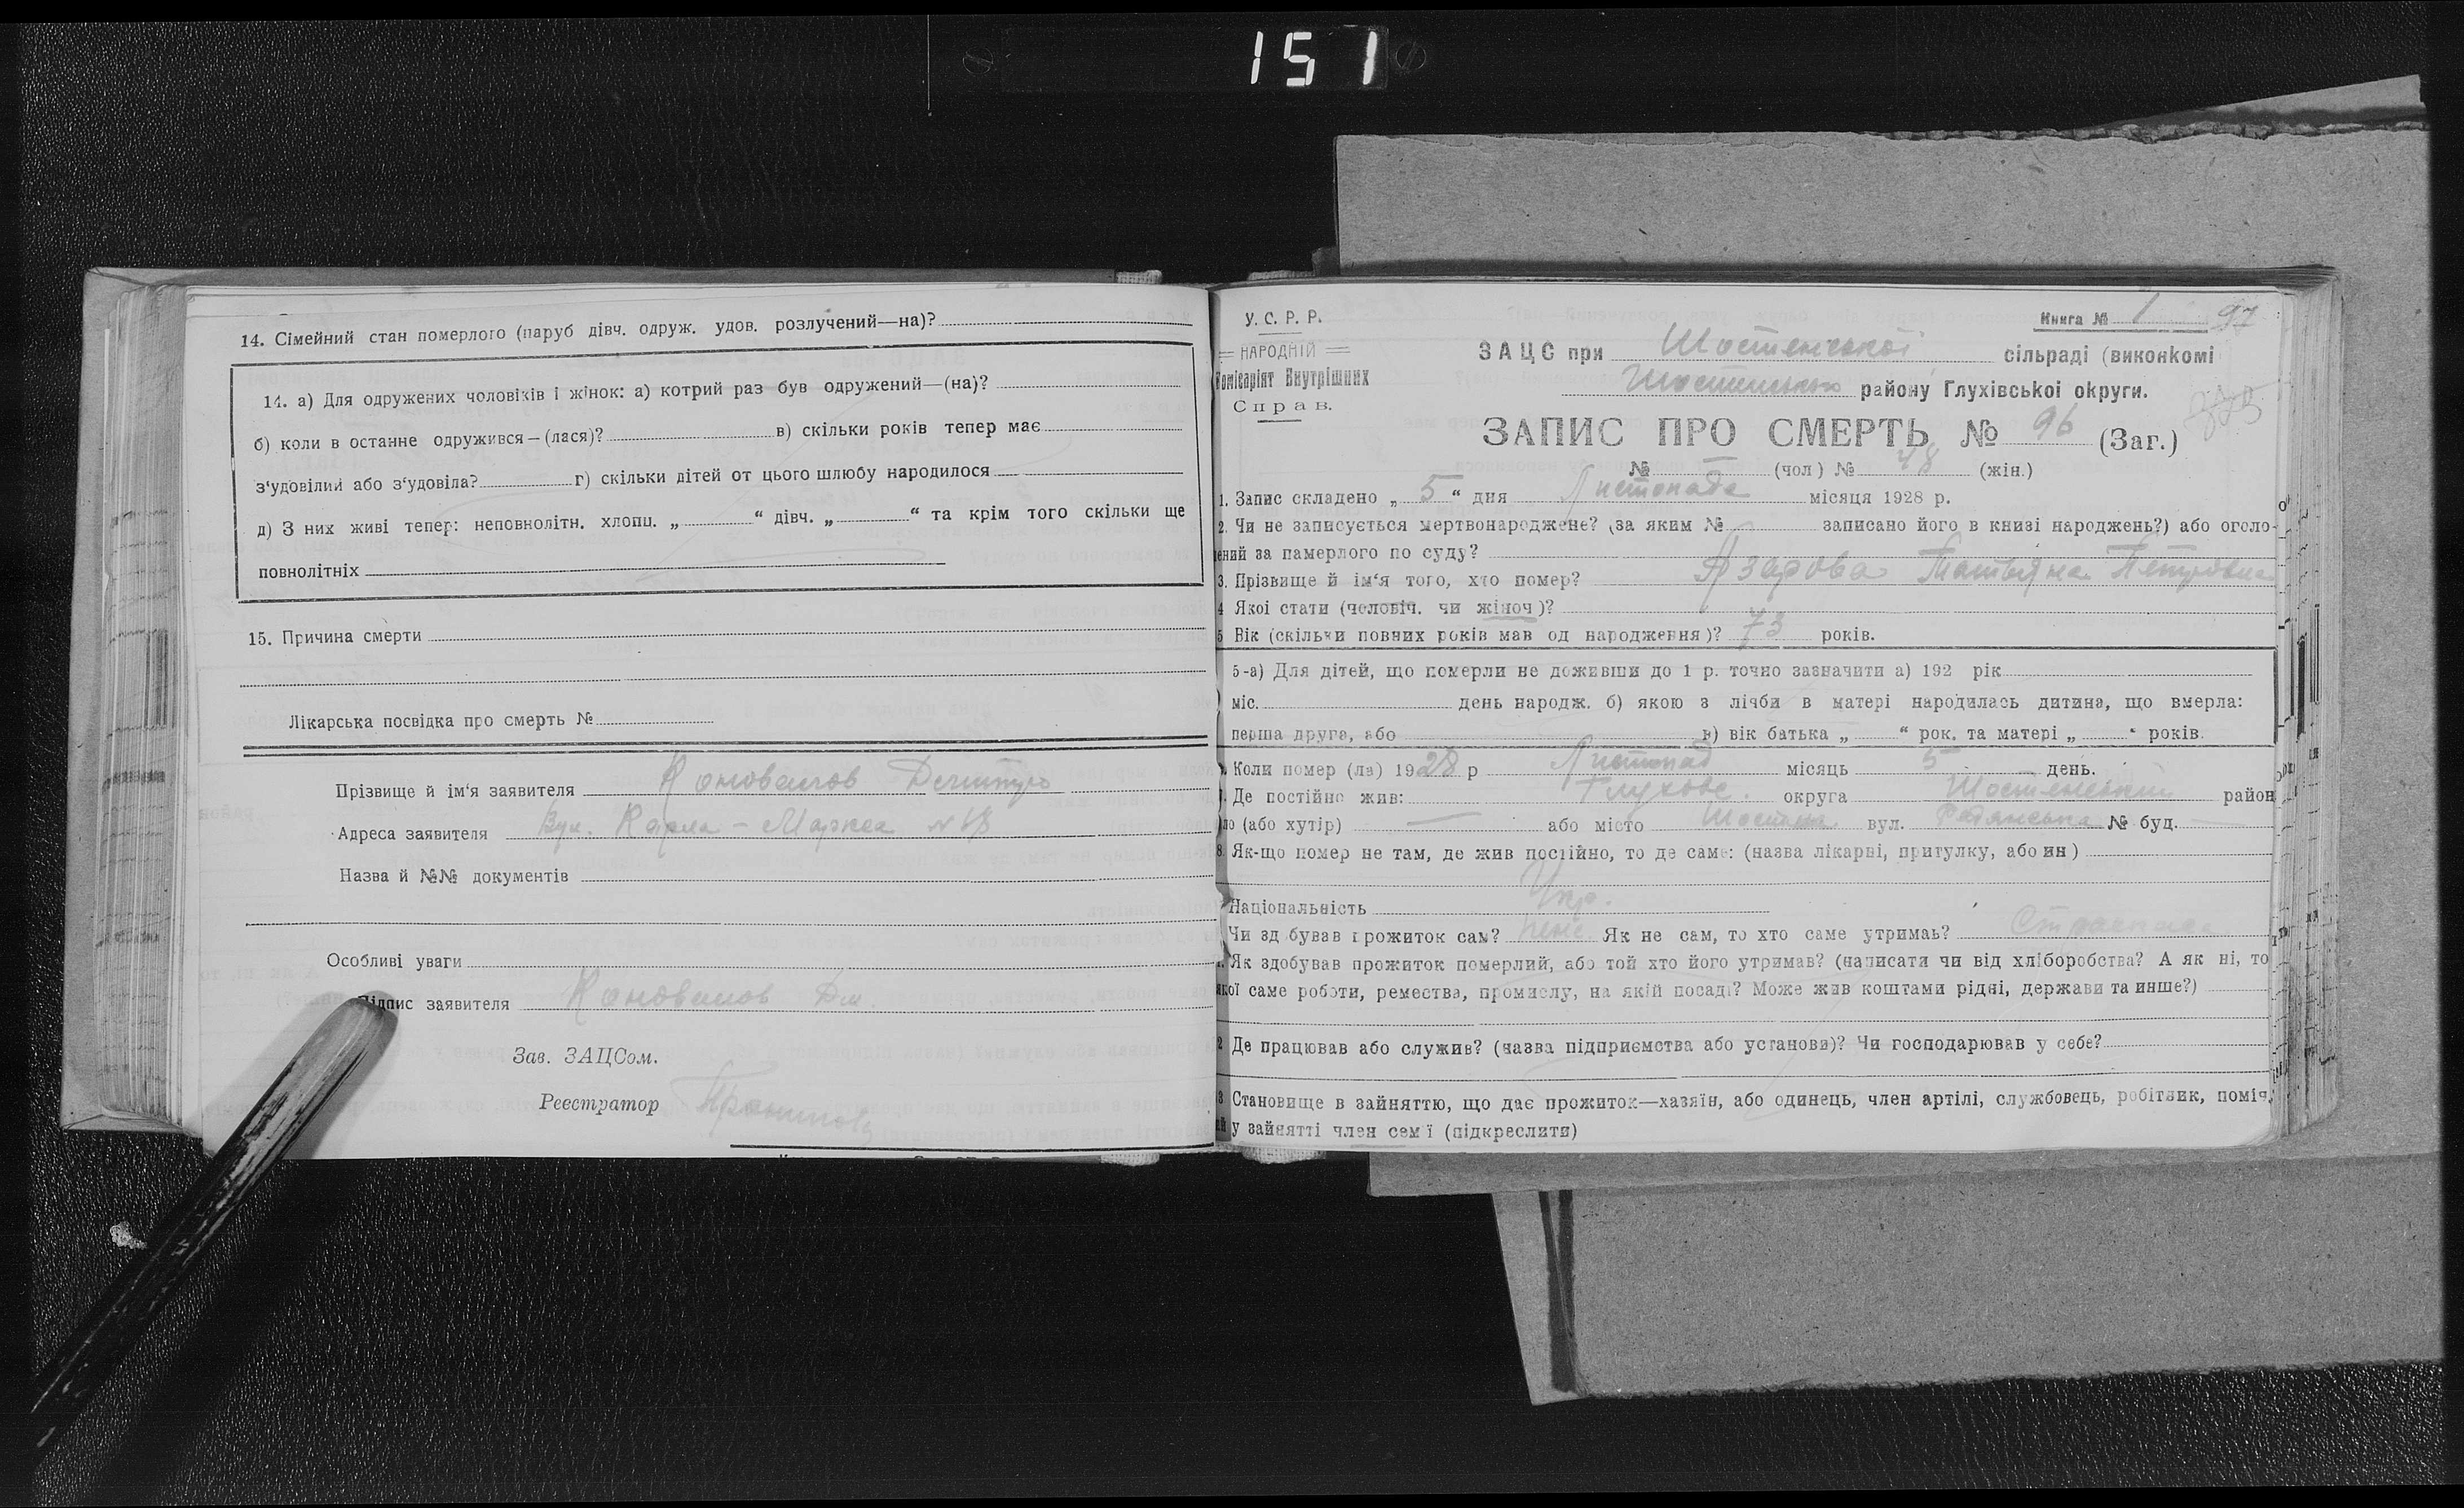 151
14. Сімейний стан померлого (паруб дівч. одруж. удов. розлучений—на)?
14. а) Для одружених чоловіків і жінок: а) котрий раз був одружений—(на)?
б) коли в останне одружився—(лася)? в) скільки років тепер має
з'удовілий або з'удовіла? г) скільки дітей от цього шлюбу народилося
д) З них живі тепер: неповнолітн. хлопц. „ “ дівч. „ “ та крім того скільки ще
повнолітніх
15. Причина смерти
Лікарська посвідка про смерть №
Прізвище й ім'я заявителя Коновалов
Адреса заявителя Вул. Карла-Маркса №
Назва й №№ документів
Особливі уваги
Підпис заявителя Коновалов Дм.
Зав. ЗАЦСом.
Реєстратор
У. С. Р. Р.
НАРОДНІЙ
Комісаріят Внутрішних
Справ.
Книга № 1 97
ЗАЦС при Шостенської сільраді (виконкомі
району Глухівської округи.
ЗАПИС ПРО СМЕРТЬ № 96 (Заг.)
№ — (чол) № 48 (жін.)
1. Запис складено „ 5 “ дня Листопада місяця 1928 р.
2. Чи не записується мертвонароджене? (за яким № записано його в книзі народжень?) або оголо-
ений за памерлого по суду?
3. Прізвище й ім'я того, хто помер? Азарова Татьяна Петровна
4 Якої стати (человіч. чи жіноч)?
5 Вік (скільки повних років мав од народження)? 73 років.
5-а) Для дітей, що померли не доживши до 1 р. точно зазначити а) 192 рік
міс. день народж. б) якою з лічби в матері народилась дитина, що вмерла:
перша друга, або в) вік батька „ “ рок. та матері „ “ років.
Коли помер (ла) 1928 р Листопад місяць 5 день.
Де постійно жив: Глухове. округа Шостенський район
ло (або хутір) — або місто Шостка вул. Радянська № буд. —
8. Як-що помер не там, де жив постійно, то де саме: (назва лікарні, притулку, або ин)
Національність Укр.
Чи здобував прожиток сам? Як не сам, то хто саме утримаь?
Як здобував прожиток померлий, або той хто його утримав? (написати чи від хліборобства? А як ні, то
якої саме роботи, ремества, промислу, на якій посаді? Може жив коштами рідні, держави та инше?)
2 Де працював або служив? (назва підприємства або установи)? Чи господарював у себе?
3 Становище в зайняттю, що дає прожиток—хазяїн, або одинець, член артілі, службовець, робітник, поміч,
у зайнятті член сем'ї (підкреслити)